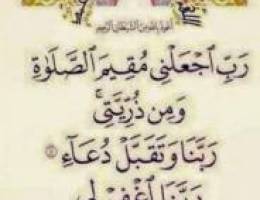 أعوذ بالله من الشيطان الرجيم
رَبِّ ٱجْعَلْنِى مُقِيمَ ٱلصَّلَوٰةِ
وَمِن ذُرِّيَّتِى ۚ
رَبَّنَا وَتَقَبَّلْ دُعَآءِ
رَبَّنَا ٱغْفِرْ لِى